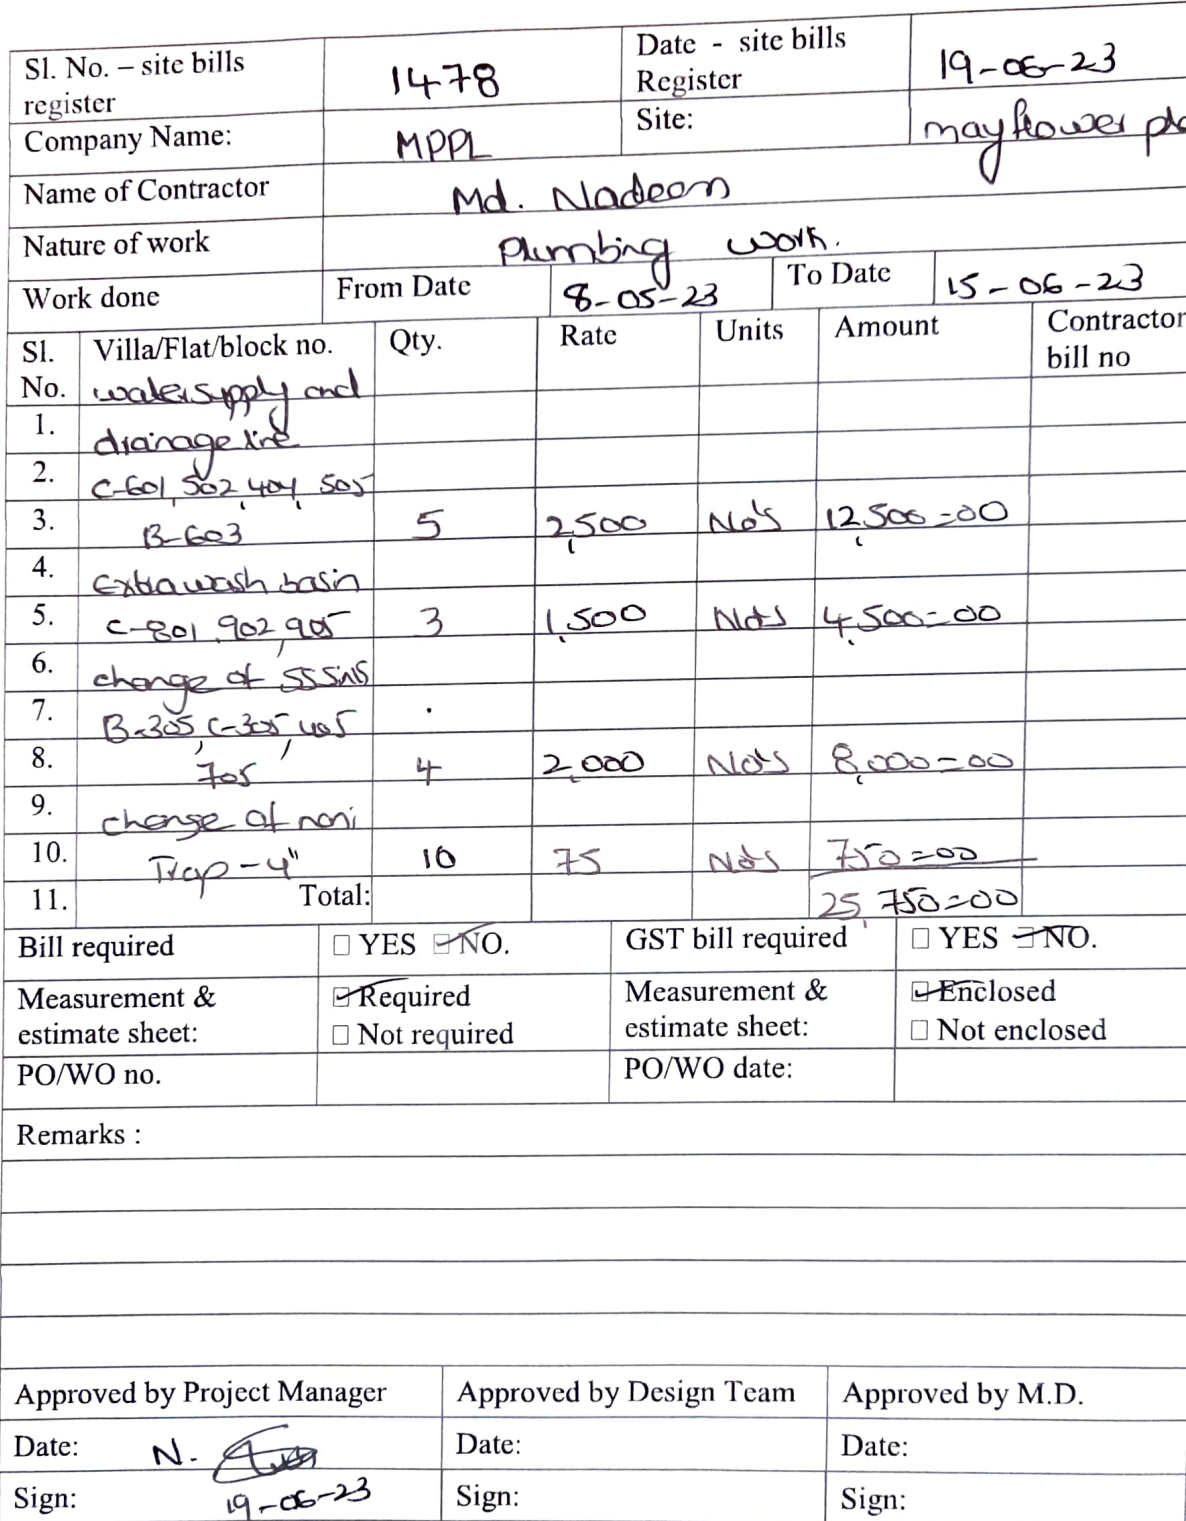 Sl. No. – site bills register 1478 Date - site bills Register 19-06-23
Company Name: MPPL Site: mayflower
Name of Contractor Md. Nadeem
Nature of work Plumbing work.
Work done From Date 8-05-23 To Date 15-06-23
Sl. No. Villa/Flat/block no. Qty. Rate Units Amount Contractor bill no
watersupply and
1. drainage line
2. C-601, 502, 404, 505
3. B-603 5 2,500 No's 12,500=00
4. extra wash basin
5. C-801, 902, 905 3 1,500 No's 4,500=00
6. change of SS Sink
7. B-305, C-305, 405
8. 705 4 2,000 No's 8,000=00
9. change of nani
10. Trap-4" 10 75 No's 750=00
11. Total: 25,750=00
Bill required □ YES ☑ NO. GST bill required □ YES ☑ NO.
Measurement & estimate sheet: ☑ Required □ Not required Measurement & estimate sheet: ☑ Enclosed □ Not enclosed
PO/WO no. PO/WO date:
Remarks :
Approved by Project Manager Approved by Design Team Approved by M.D.
Date: N. Date: Date:
Sign: 19-06-23 Sign: Sign: